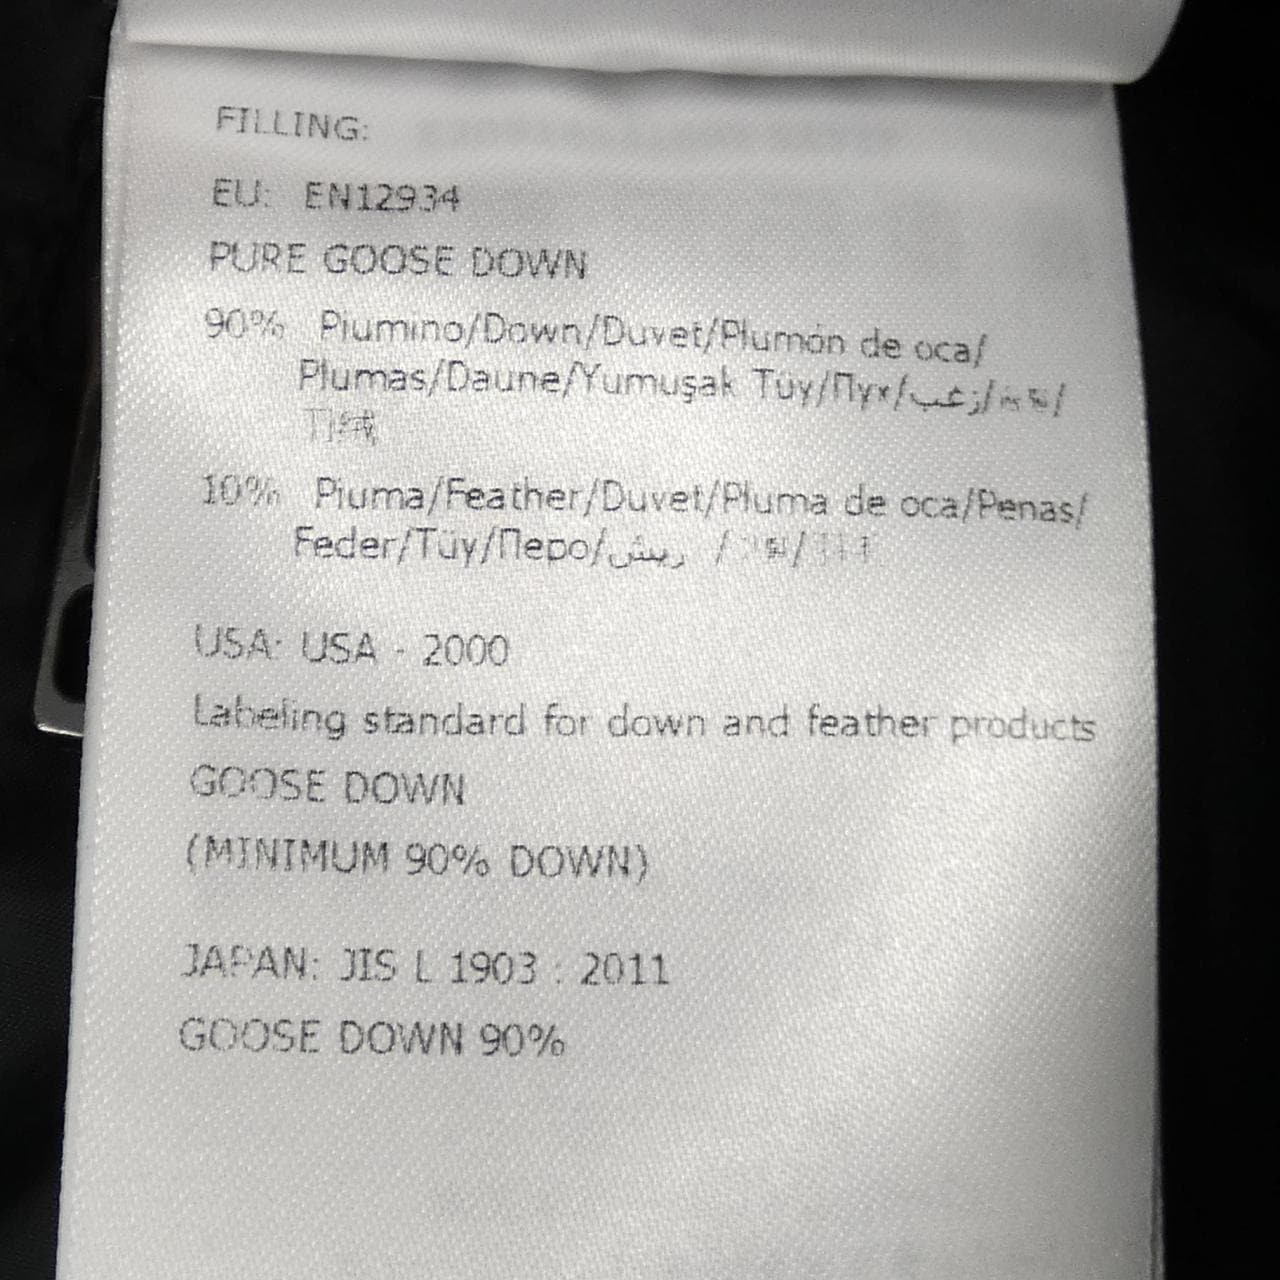 FILLING:
EU: EN12934
PURE GOOSE DOWN
90% Piumino/Down/Duvet/Plumón de oca/
Plumas/Daune/Yumuşak Tüy/Пух/زغب/
10% Piuma/Feather/Duvet/Pluma de oca/Penas/
Feder/Tüy/Перо/ريش /
USA: USA - 2000
Labeling standard for down and feather products
GOOSE DOWN
(MINIMUM 90% DOWN)
JAPAN: JIS L 1903 : 2011
GOOSE DOWN 90%